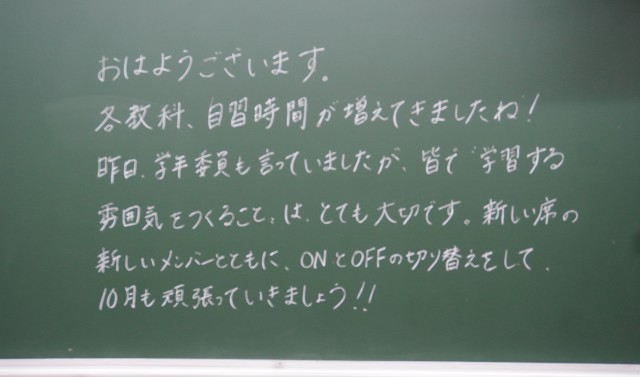 おはようございます。
各教科、自習時間が増えてきましたね!
昨日、学年委員も言っていましたが、皆で学習する
雰囲気をつくること、は、とても大切です。新しい席の
新しいメンバーとともに、ONとOFFの切り替えをして、
10月も頑張っていきましょう!!